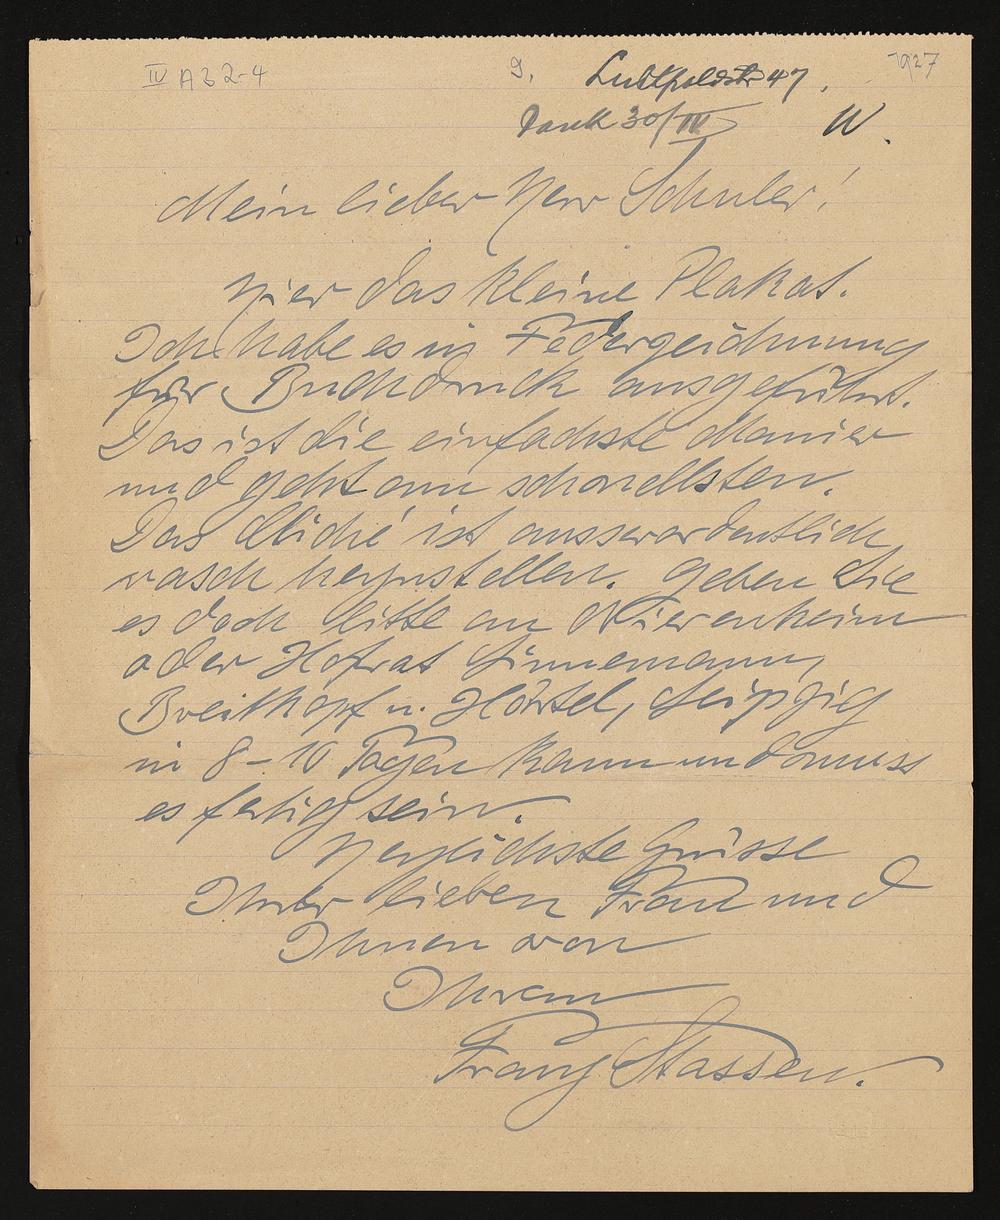 IV A 3 2-4 9. Luitpoldstr 47, 1927
Dank 30/IV W.
Mein lieber Herr Schuler!
Hier das kleine Plakat.
Ich habe es in Federzeichnung
für Buchdruck ausgeführt.
Das ist die einfachste Manier
und geht am schnellsten.
Das Cliché ist ausserordentlich
rasch herzustellen. Geben Sie
es doch bitte an
oder Hofrat Linnemann,
Breitkopf u. Härtel, Leipzig
in 8-10 Tagen kann und muss
es fertig sein.
Herzlichste Grüsse
Ihrer lieben Frau und
Ihnen von
Ihrem
Franz Stassen.